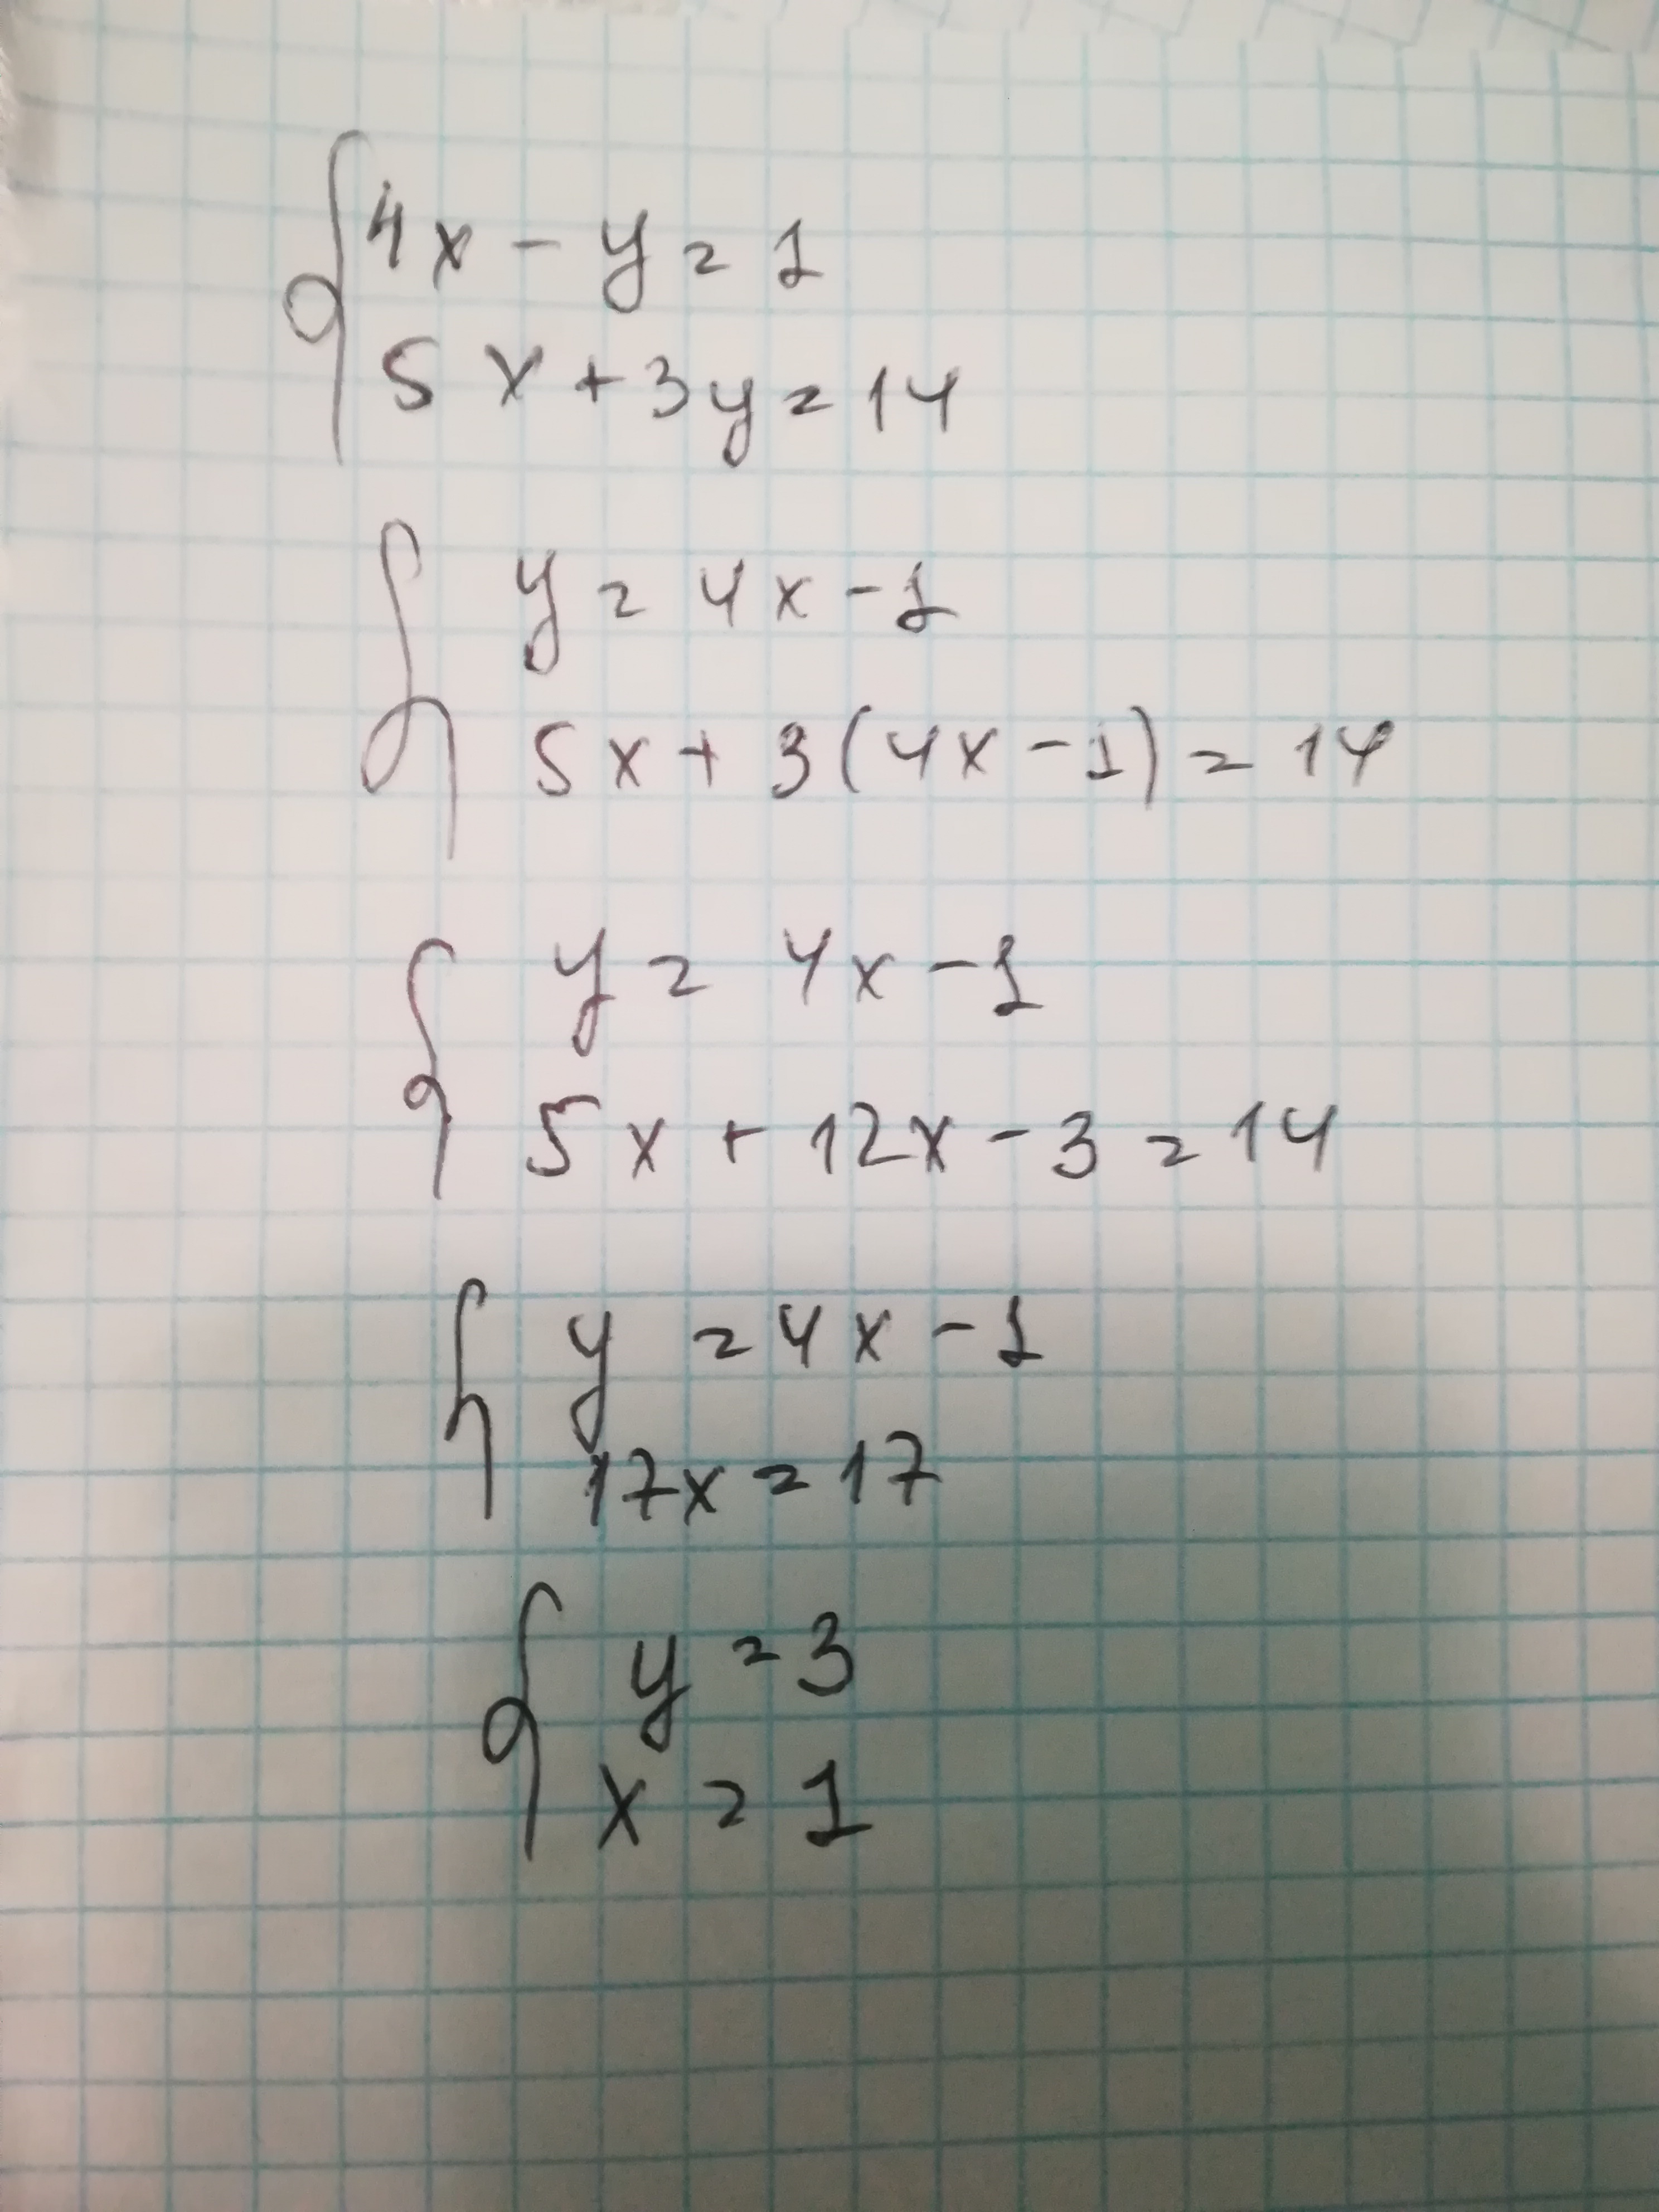 4x - y = 1
5x + 3y = 14
y = 4x - 1
5x + 3(4x - 1) = 14
y = 4x - 1
5x + 12x - 3 = 14
y = 4x - 1
17x = 17
y = 3
x = 1